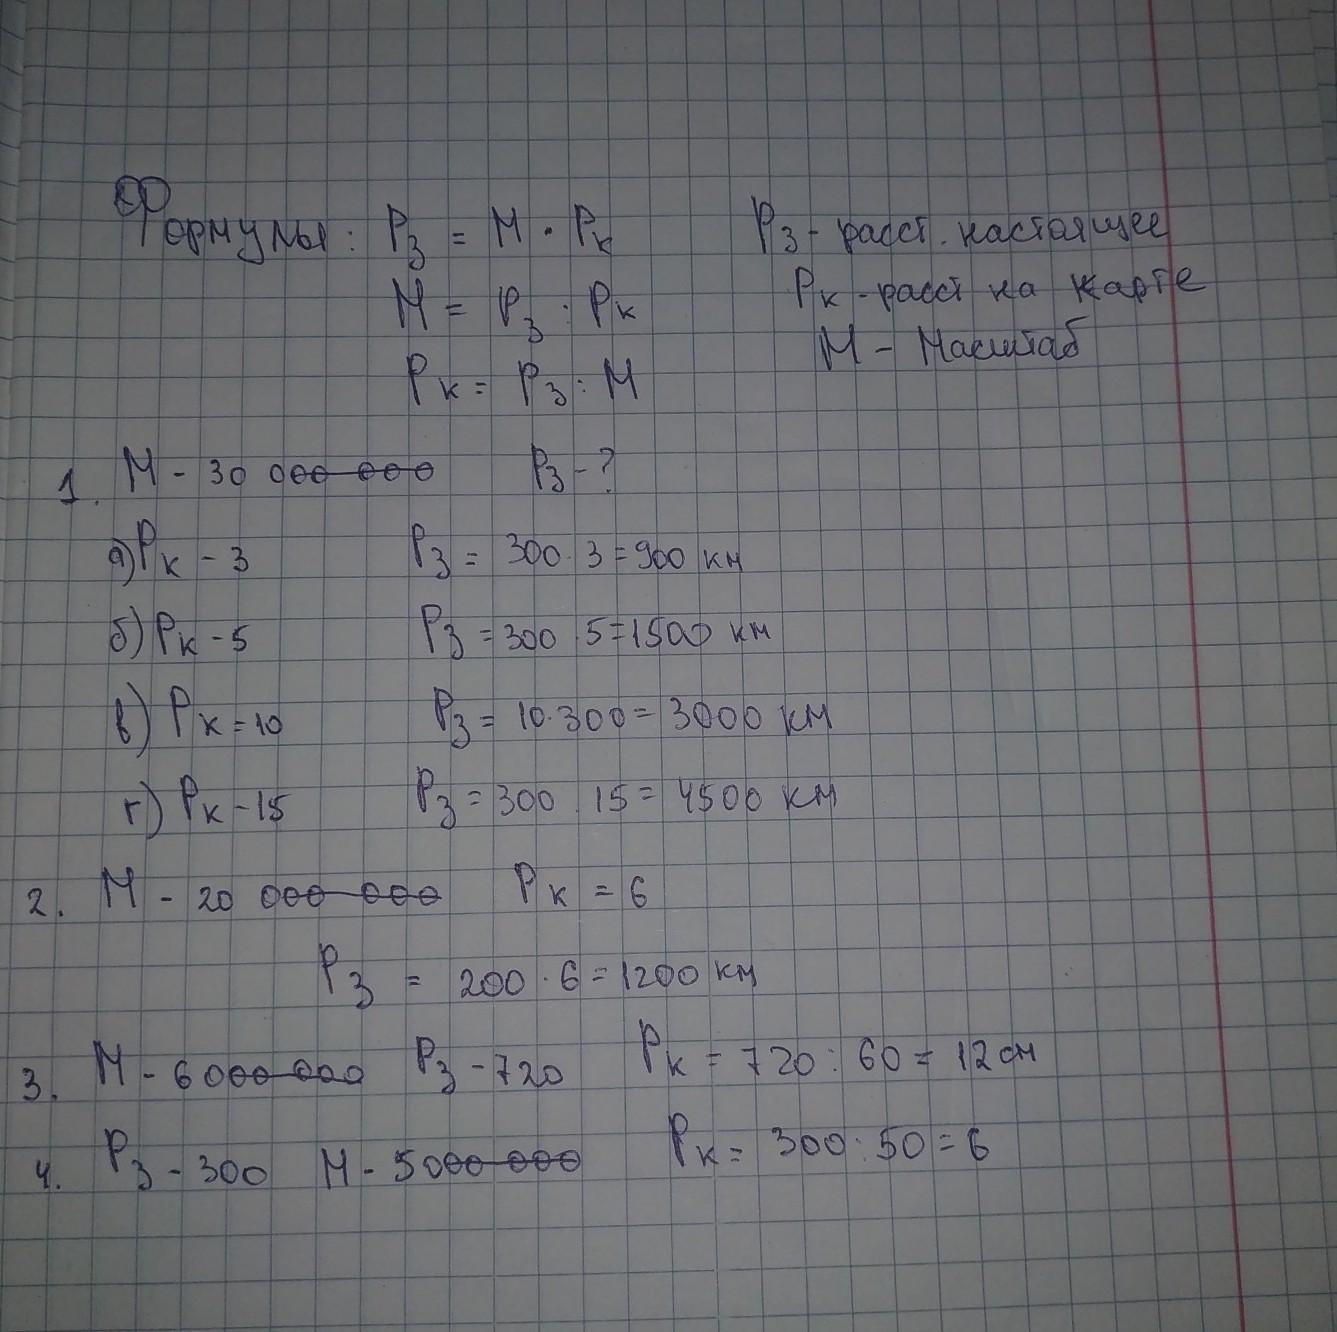 Формулы: Pз = М · Pк Pз - расст. настоящее
М = Pз : Pк Pк - расст на карте
Pк = Pз : М М - Масштаб
1. М - 30 000 000 Pз - ?
а) Pк - 3 Pз = 300 · 3 = 900 км
б) Pк - 5 Pз = 300 · 5 = 1500 км
в) Pк = 10 Pз = 10 · 300 = 3000 км
г) Pк - 15 Pз = 300 · 15 = 4500 км
2. М - 20 000 000 Pк = 6
Pз = 200 · 6 = 1200 км
3. М - 6 000 000 Pз - 720 Pк = 720 : 60 = 12 см
4. Pз - 300 М - 5000 000 Pк = 300 : 50 = 6